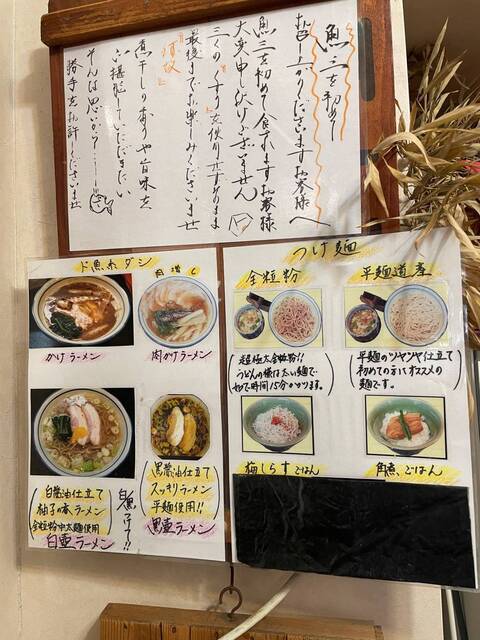 魚三を初めて
お召し上がりくださいますお客様へ
魚三を初めて食されますお客様
大変申し訳けございません
三くの くすり
最後までお楽しみくださいませ
煮干しの香りや旨味を
ご堪能していただきたい
そんな思いから……
勝手をお許しくださいませ
ド魚介ダシ
肉増し
かけラーメン
肉かけラーメン
白醤油仕立て
柚子の香ラーメン
全粒粉中太麺使用
白壷ラーメン
黒醤油仕立て
スッキリラーメン
平麺使用!!
黒壷ラーメン
つけ麺
全粒粉
超極太全粒粉!!
うどんの様な太い麺で
ゆで時間15分かかります。
平麺のツヤツヤ仕立て
初めての方にオススメの
麺です。
梅しらすごはん
角煮ごはん